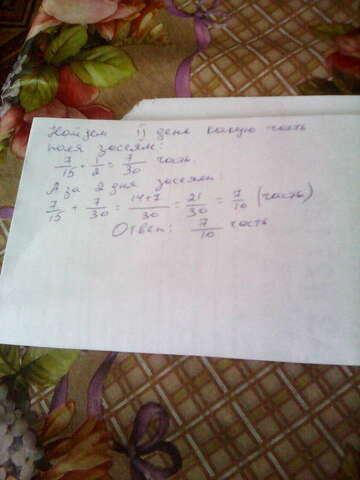 Найдем II день какую часть
поля засеям:
7/15 · 1/2 = 7/30 часть.
А за 2 дня засеям:
7/15 + 7/30 = 14+7/30 = 21/30 = 7/10 (часть)
Ответ: 7/10 часть